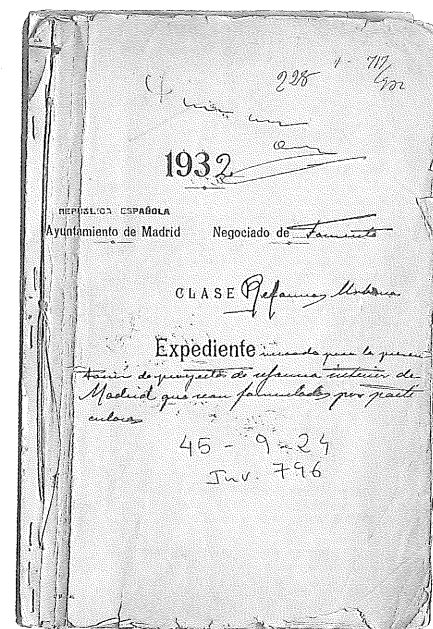 228 1-717/932
1932
REPUBLICA ESPAÑOLA
Ayuntamiento de Madrid Negociado de Fomento
CLASE Reformas Urbanas
Expediente incoado para la presen
tación de proyectos de reforma interior de
Madrid que sean formulados por parti
culares
45-9-24
Inv. 796